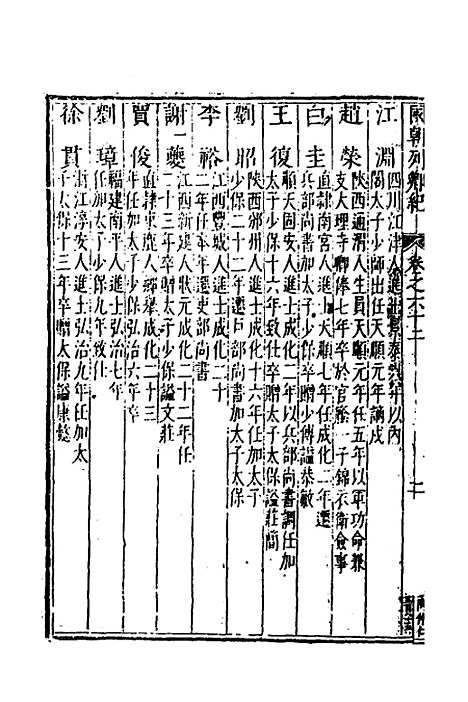 國朝列卿紀 卷之六十二 二
江淵
四川江津人進士景泰
閣太子少師出任天順元年謫戍
趙榮
陝西通渭人生員天順元年任五年以軍功命兼
支大理寺卿俸七年卒於官廕一子錦衣衛僉事
白圭
直隸南宮人進士天順七年任成化二年還
兵部尚書加太子少保卒贈少傅諡恭敏
王復
順天固安人進士成化二年以兵部尚書調任加
太子少保十六年致仕卒贈太子太保諡莊簡
劉昭
陝西邠州人進士成化十六年任加太子
少保二十二年還戶部尚書加太子太保
李裕
江西豐城人進士成化二十
二年任本年還吏部尚書
謝一夔
江西新建人狀元成化二十二年任
二十三年卒贈太子少保諡文莊
賈俊
直隸束鹿人經舉成化二十三
年任加太子少保弘治六年卒
劉璋
福建南平人進士弘治七年
任加太子少保九年致仕
徐貫
浙江淳安人進士弘治九年任加太
子太保十三年卒贈太保諡康懿